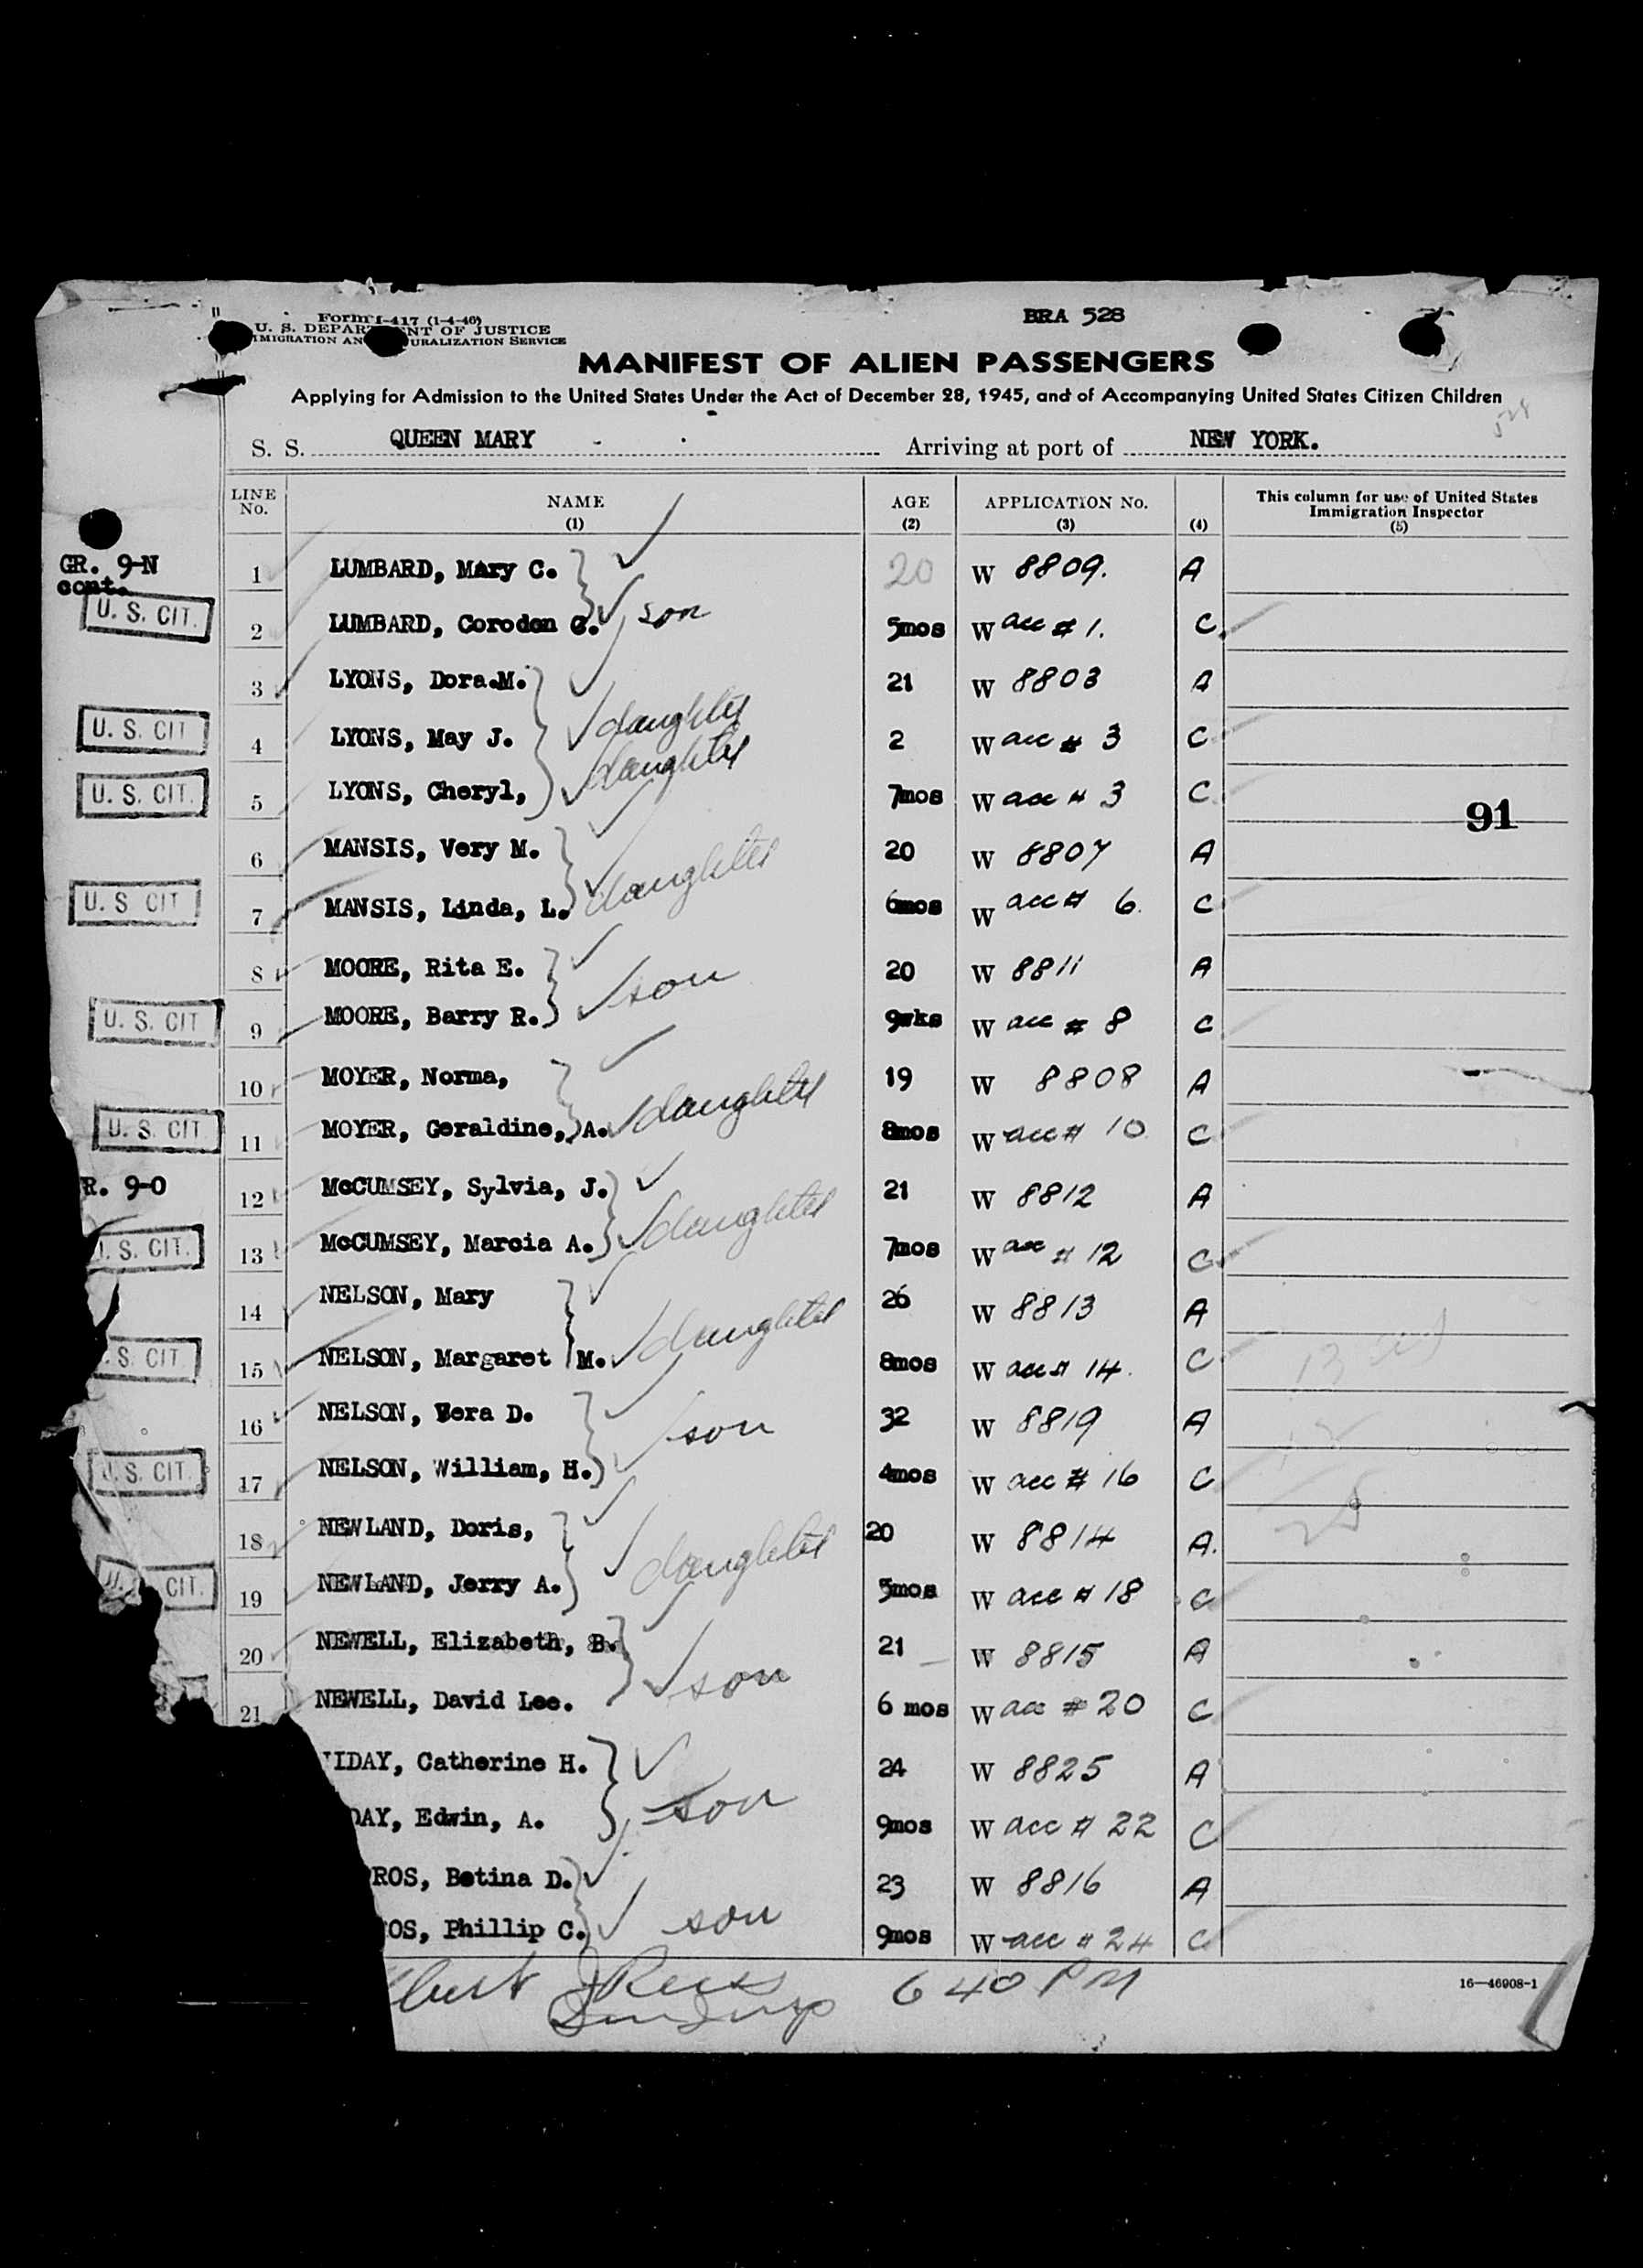 Form I-417 (1-4-46)
U. S. DEPAR NT OF JUSTICE
MIGRATION AN URALIZATION SERVICE
BRA 528
MANIFEST OF ALIEN PASSENGERS
Applying for Admission to the United States Under the Act of December 28, 1945, and of Accompanying United States Citizen Children
528
S. S. QUEEN MARY Arriving at port of NEW YORK.
LINE No. NAME (1) AGE (2) APPLICATION No. (3) (4) This column for use of United States Immigration Inspector (5)
GR. 9-N cont.
1 LUMBARD, Mary C. 20 W 8809. A
U. S. CIT. 2 LUMBARD, Corodon G. son 5mos W acc # 1. C
3 LYONS, Dora.M. 21 W 8803 A
U. S. CIT 4 LYONS, May J. daughter 2 W acc # 3 C
U. S. CIT. 5 LYONS, Cheryl, daughter 7mos W acc # 3 C
91
6 MANSIS, Very M. 20 W 8807 A
U. S CIT 7 MANSIS, Linda, L. daughter 6mos W acc # 6. C
8 MOORE, Rita E. 20 W 8811 A
U. S. CIT 9 MOORE, Barry R. son 9wks W acc # 8 C
10 MOYER, Norma, 19 W 8808 A
U. S. CIT 11 MOYER, Geraldine, A. daughter 8mos W acc # 10 C
R. 9-O 12 McCUMSEY, Sylvia, J. 21 W 8812 A
U. S. CIT. 13 McCUMSEY, Marcia A. daughter 7mos W acc # 12 C
14 NELSON, Mary 26 W 8813 A
. S. CIT 15 NELSON, Margaret M. daughter 8mos W acc # 14. C
16 NELSON, Vera D. 32 W 8819 A
U. S. CIT. 17 NELSON, William, H. son 4mos W acc # 16 C
18 NEWLAND, Doris, 20 W 8814 A.
U. CIT. 19 NEWLAND, Jerry A. daughter 5mos W acc # 18 C
20 NEWELL, Elizabeth, B. 21 W 8815 A
21 NEWELL, David Lee. son 6 mos W acc # 20 C
IDAY, Catherine H. 24 W 8825 A
DAY, Edwin, A. son 9mos W acc # 22 C
ROS, Betina D. 23 W 8816 A
OS, Phillip C. son 9mos W acc # 24 C
640 PM
16—46908-1